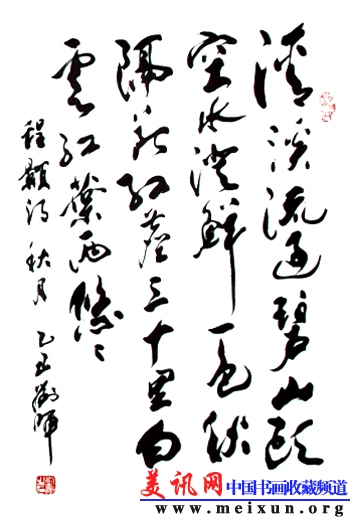 清溪流過碧山頭
空水澄鮮一色秋
隔斷紅塵三十里白
雲紅葉兩悠々
程顥詩 秋月 乙丑
美讯网 中国书画收藏频道
www.meixun.org